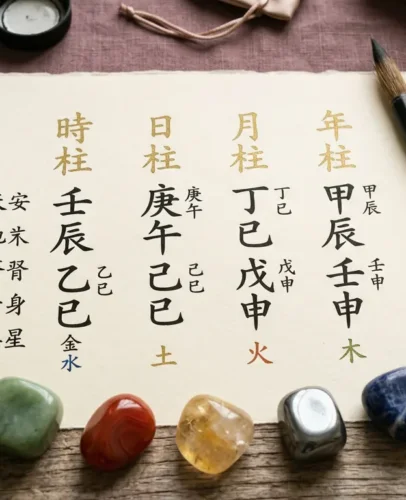 年柱
甲辰壬申
甲辰
壬申
木
月柱
丁巳戊申
丁巳
戊申
火
日柱
庚午己巳
庚午
己巳
土
時柱
壬辰乙巳
乙巳
金水
安
腎身星